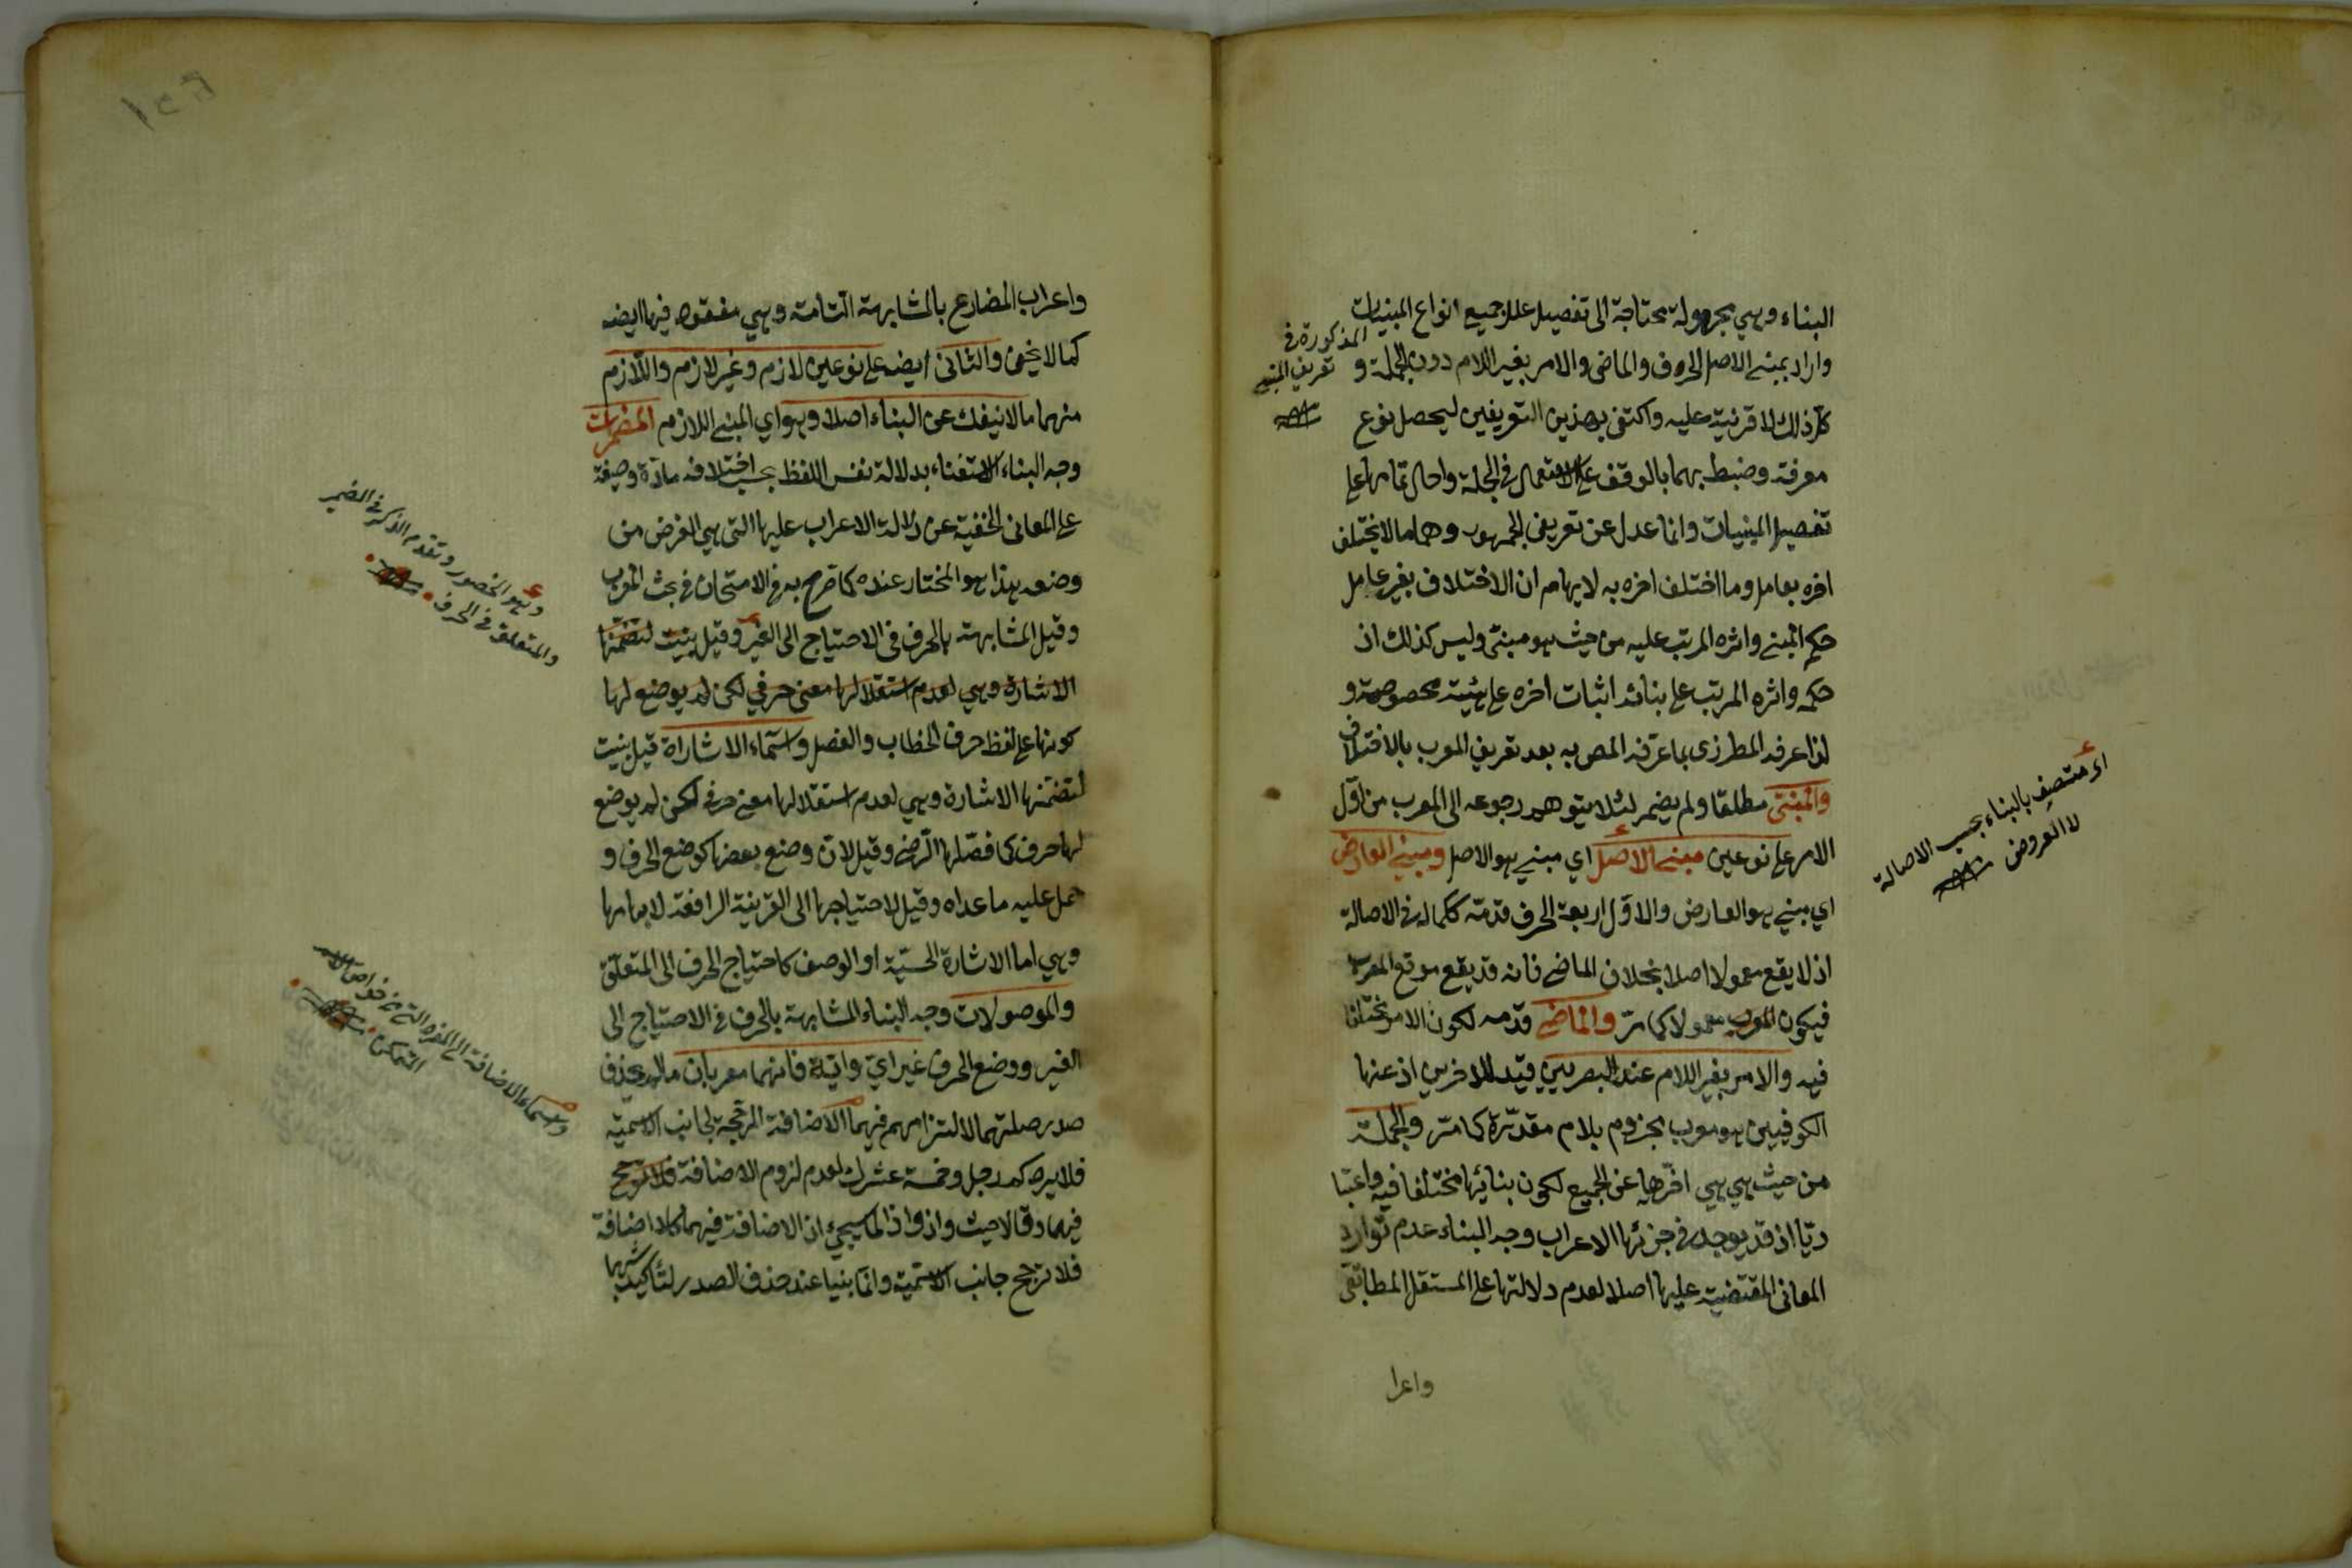 البناء وهي مجهولة محتاجة الى تفصيل علل جميع انواع المبنيات
واراد بمبنى الاصل الحروف والماضى والامر بغير اللام دون الجملة و
كل ذلك لا قرنية عليه واكتفى بهذين التعريفين ليحصل نوع
معرفة وضبط بهما بالوقف على الاستعمال فى الجملة واحال تمامها على
تفصيل المبنيات وانما عدل عن تعريفى الجمهور وهما ما لا يختلف
اخره بعامل وما اختلف اخره به لايهام ان الاختلاف بغير عامل
حكم المبنى واثره المرتب عليه من حيث هو مبنى وليس كذلك اذ
حكمه واثره المرتب على بنائه اثبات اخره على هيئة مخصوصة و
لذا عرفه المطرزى بما عرفه المص به بعد تعريف المعرب بالاختلاف
والمبنى مطلقا ولم يضمر لئلا يتوهم رجوعه الى المعرب من اول
الامر على نوعين مبنى الاصل اي مبني هو الاصل ومبني العارض
اي مبني هو العارض والاول اربعة الحرف قدمه لكماله فى الاصالة
اذ لا يقع معمولا اصلا بخلاف الماضى فانه قد يقع موقع المعرب
فيكون معمولا كما مر والماضى قدمه لكون الامر مختلفا
فيه والامر بغير اللام عند البصريين قيد للاخرين اذ عنها
الكوفيين هو معرب مجزوم بلام مقدرة كما مر والجملة
من حيث هي هي اخرها عن الجميع لكون بنائها مختلفا فيه واعتبا
ريا اذ قد يوجد فى جزئها الاعراب وجه البناء عدم توارد
المعانى المقتضية عليها اصلا لعدم دلالتها على المستقل المطابقى
واعرا
المذكورة فى
تعريف المبنى
اى متصف بالبناء بحسب الاصالة
لا العروض
واعراب المضارع بالمشابهة التامة وهي مفقود فيها ايضه
كما لا يخفى والثانى ايضه على نوعين لازم وغير لازم واللازم
منهما ما لا ينفك عن البناء اصلا وهو اي المبنى اللازم المضمرات
وجه البناء الاستغناء بدلالة نفس اللفظ بحسب اختلافه مادة وصيغة
على المعانى الخفية عن دلالة الاعراب عليها التى هي الغرض من
وضعه هذا هو المختار عنده كما صرح به فى الامتحان فى بحث المعرب
وقيل المشابهة بالحرف فى الاحتياج الى الغير وقيل بنيت لتضمنها
الاشارة وهي لعدم استقلالها معنى حرفي لكن لم يوضع لها
كونها على لفظ حرف الخطاب والفصل واسماء الاشارة قيل بنيت
لتضمنها الاشارة وهي لعدم استقلالها معنى حرفى لكن لم يوضع
لها حرف كما فصلها الرضى وقيل لان وضع بعضها كوضع الحرف و
حمل عليه ما عداه وقيل لاحتياجها الى القرينة الرافعة لابهامها
وهي اما الاشارة الحسية او الوصف كاحتياج الحرف الى المتعلق
والموصولات وجه البناء المشابهة بالحرف فى الاحتياج الى
الغير ووضع الحرف غير اي واية فانهما معربان ما لم يحذف
صدر صلتهما لالتزامهم فيهما الاضافة المرجحة لجانب الاسمية
فلا يرد كم رجل وخمسة عشرك لعدم لزوم الاضافة فلا ترجح
فيهما وقالا حيث واذ واذا لما سيجئ ان الاضافة فيهما كلا اضافة
فلا ترجح جانب الاسمية وانما بنيا عند حذف الصدر لتأكيد شبهها
وهو الحضور وتقدم الذكر فى الضمير
والمتعلق فى الحرف
الاضافة الى المفرد التى من خواص الاسم
المتمكن